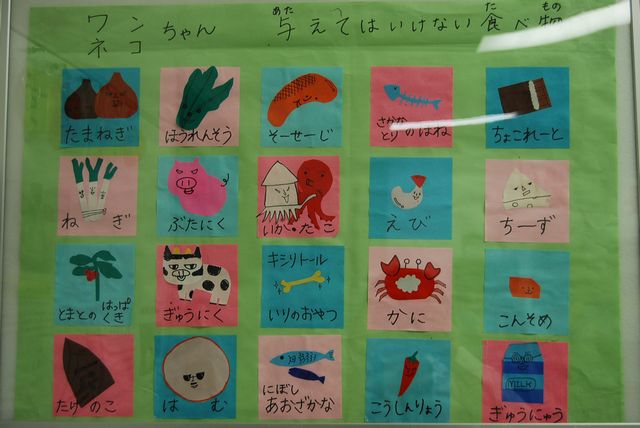 ワンちゃん 与えてはいけない食べ物
ネコ
あた た もの
たまねぎ
ほうれんそう
そーせーじ
さかな
とりのほね
ちょこれーと
ねぎ
ぶたにく
いか・たこ
えび
ちーず
とまとのはっぱ
くき
ぎゅうにく
キシリトール
いりのおやつ
かに
こんそめ
たけのこ
はむ
にぼし
あおざかな
こうしんりょう
MILK
ぎゅうにゅう